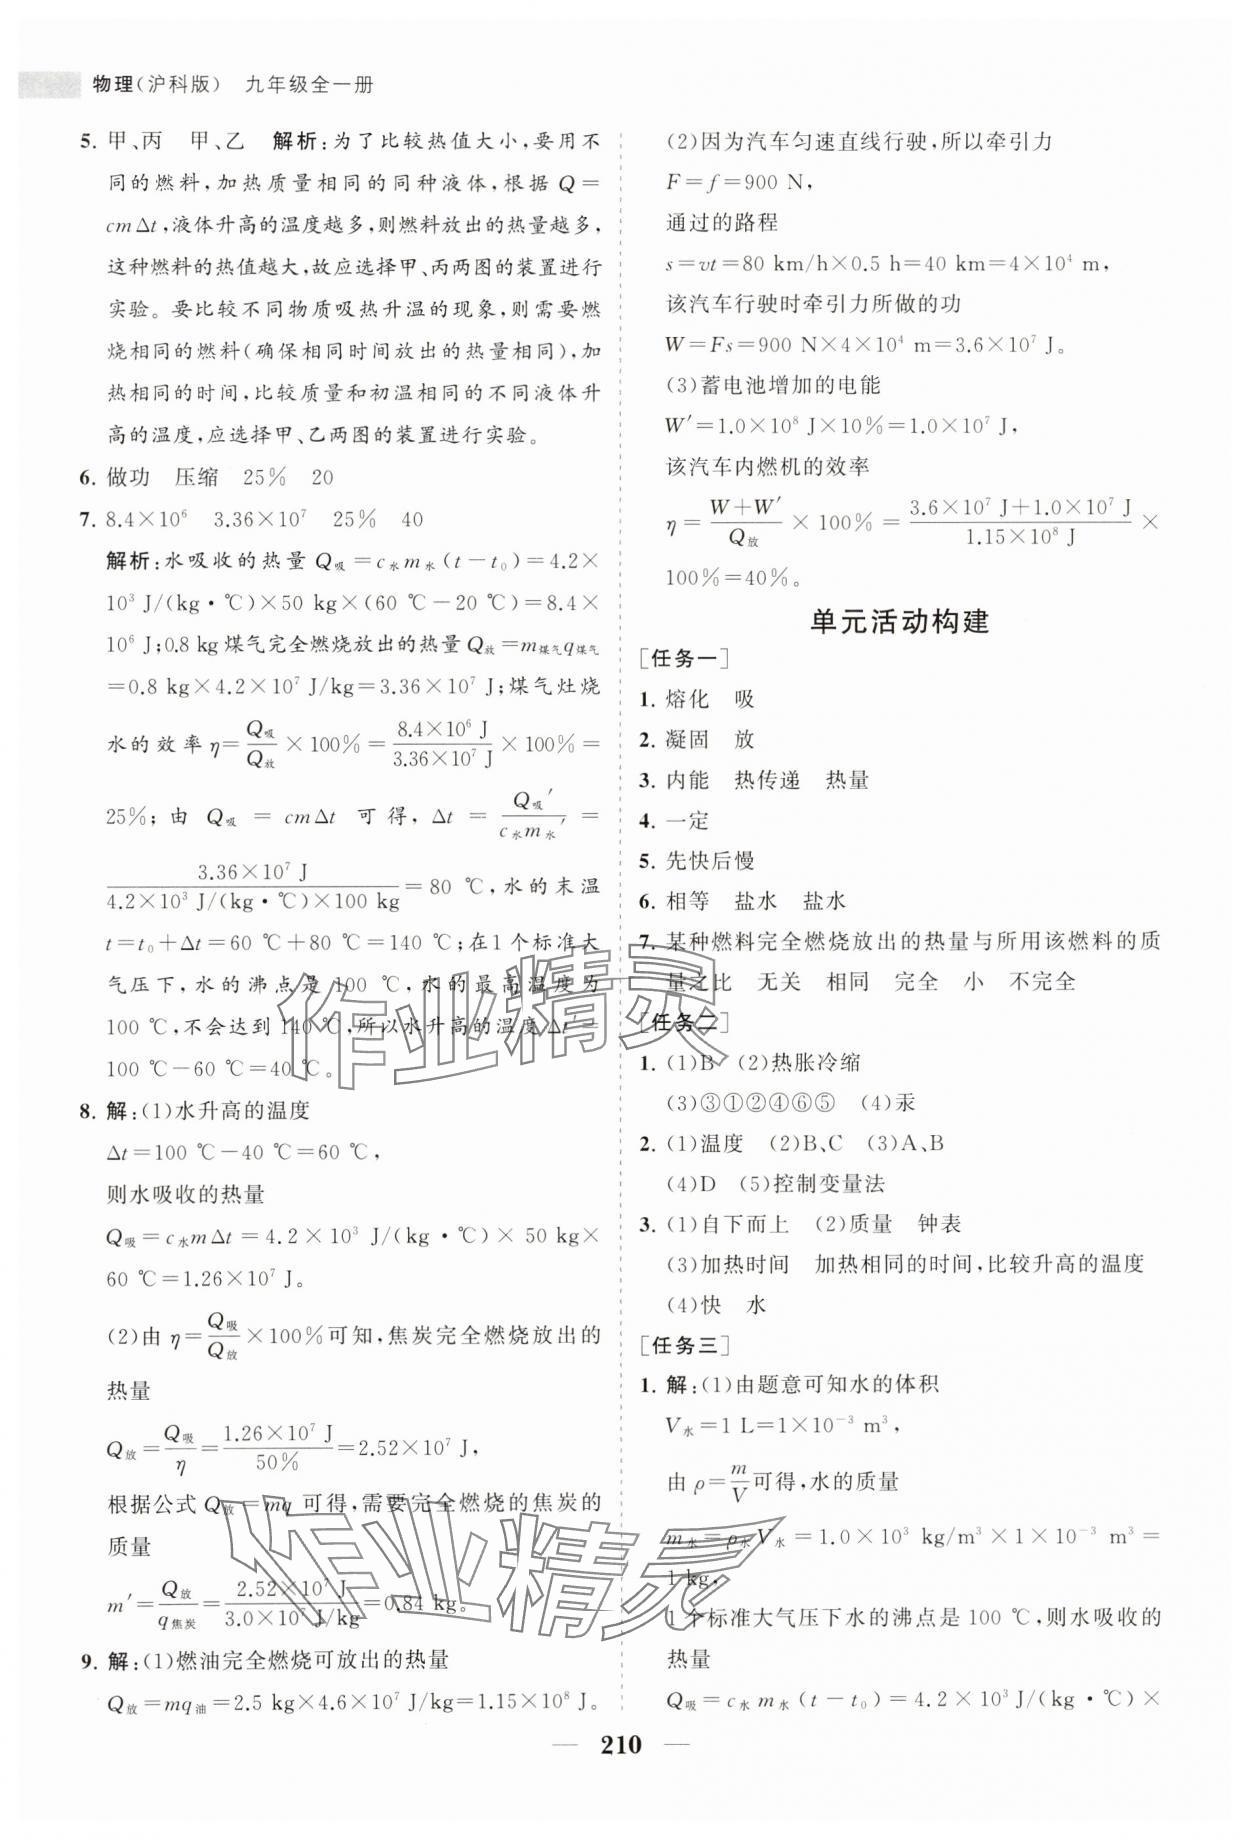 物理(沪科版) 九年级全一册
5. 甲、丙 甲、乙 解析:为了比较热值大小,要用不
同的燃料,加热质量相同的同种液体,根据 Q=
cmΔt,液体升高的温度越多,则燃料放出的热量越多,
这种燃料的热值越大,故应选择甲、丙两图的装置进行
实验。要比较不同物质吸热升温的现象,则需要燃
烧相同的燃料(确保相同时间放出的热量相同),加
热相同的时间,比较质量和初温相同的不同液体升
高的温度,应选择甲、乙两图的装置进行实验。
6. 做功 压缩 25% 20
7. 8.4×10⁶ 3.36×10⁷ 25% 40
解析:水吸收的热量 Q吸=c水m水(t-t₀)=4.2×
10³ J/(kg·℃)×50 kg×(60 ℃-20 ℃)=8.4×
10⁶ J;0.8 kg煤气完全燃烧放出的热量Q放=m煤气q煤气
=0.8 kg×4.2×10⁷ J/kg=3.36×10⁷ J;煤气灶烧
水的效率η=Q吸/Q放×100%=8.4×10⁶ J/3.36×10⁷ J×100%=
25%;由 Q吸=cmΔt 可得,Δt=Q吸′/c水m水′=
3.36×10⁷ J/4.2×10³ J/(kg·℃)×100 kg=80 ℃,水的末温
t=t₀+Δt=60 ℃+80 ℃=140 ℃;在1个标准大
气压下,水的沸点是 100 ℃,水的最高温度为
100 ℃,不会达到 140 ℃,所以水升高的温度 Δt′=
100 ℃-60 ℃=40 ℃。
8. 解:(1)水升高的温度
Δt=100 ℃-40 ℃=60 ℃,
则水吸收的热量
Q吸=c水mΔt=4.2×10³ J/(kg·℃)×50 kg×
60 ℃=1.26×10⁷ J。
(2)由 η=Q吸/Q放×100%可知,焦炭完全燃烧放出的
热量
Q放=Q吸/η=1.26×10⁷ J/50%=2.52×10⁷ J,
根据公式 Q放=mq 可得,需要完全燃烧的焦炭的
质量
m′=Q放/q焦炭=2.52×10⁷ J/3.0×10⁷ J/kg=0.84 kg。
9. 解:(1)燃油完全燃烧可放出的热量
Q放=mq油=2.5 kg×4.6×10⁷ J/kg=1.15×10⁸ J。
(2)因为汽车匀速直线行驶,所以牵引力
F=f=900 N,
通过的路程
s=vt=80 km/h×0.5 h=40 km=4×10⁴ m,
该汽车行驶时牵引力所做的功
W=Fs=900 N×4×10⁴ m=3.6×10⁷ J。
(3)蓄电池增加的电能
W′=1.0×10⁸ J×10%=1.0×10⁷ J,
该汽车内燃机的效率
η=W+W′/Q放×100%=3.6×10⁷ J+1.0×10⁷ J/1.15×10⁸ J×
100%=40%。
单元活动构建
[任务一]
1. 熔化 吸
2. 凝固 放
3. 内能 热传递 热量
4. 一定
5. 先快后慢
6. 相等 盐水 盐水
7. 某种燃料完全燃烧放出的热量与所用该燃料的质
量之比 无关 相同 完全 小 不完全
[任务二]
1. (1)B (2)热胀冷缩
(3)③①②④⑥⑤ (4)汞
2. (1)温度 (2)B、C (3)A、B
(4)D (5)控制变量法
3. (1)自下而上 (2)质量 钟表
(3)加热时间 加热相同的时间,比较升高的温度
(4)快 水
[任务三]
1. 解:(1)由题意可知水的体积
V水=1 L=1×10⁻³ m³,
由 ρ=m/V可得,水的质量
m水=ρ水V水=1.0×10³ kg/m³×1×10⁻³ m³=
1 kg,
1个标准大气压下水的沸点是 100 ℃,则水吸收的
热量
Q吸=c水m水(t-t₀)=4.2×10³ J/(kg·℃)×
210
作业精灵
作业精灵